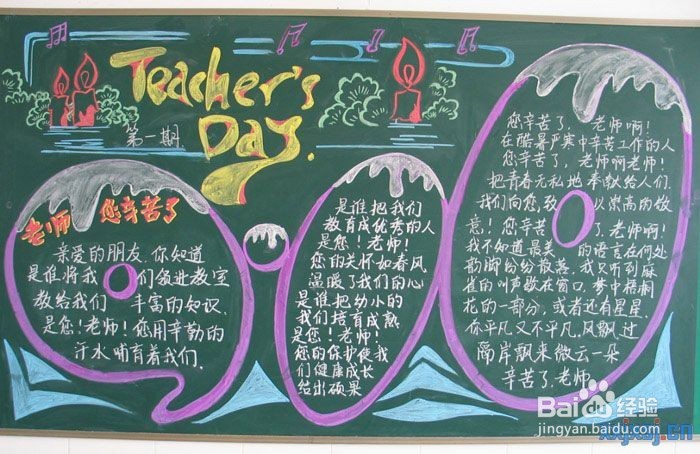 Teacher's
Day.
第一期
老师 您辛苦了
亲爱的朋友、你知道
是谁将我们领进教室
教给我们丰富的知识.
是您!老师!您用辛勤的
汗水哺育着我们.
是谁把我们
教育成优秀的人
是您!老师!
您的关怀如春风
温暖了我们的心
是谁把幼小的
我们培育成熟
是您!老师!
您的保护使我
们健康成长
结出硕果
您辛苦了,老师啊!
在酷暑严寒中辛苦工作的人
您辛苦了,老师啊老师!
把青春无私地奉献给人们.
我们向您,致以崇高的敬
意!您辛苦了,老师啊!
我不知道最美的语言在何处
韵脚纷纷散落.我只听到麻
雀的叫声歇在窗口,梦中梧桐
花的一部分,或者还有星星.
你平凡又不平凡.风飘过
隔岸飘来微云一朵
辛苦了.老师
Baidu经验
jingyan.baidu.com